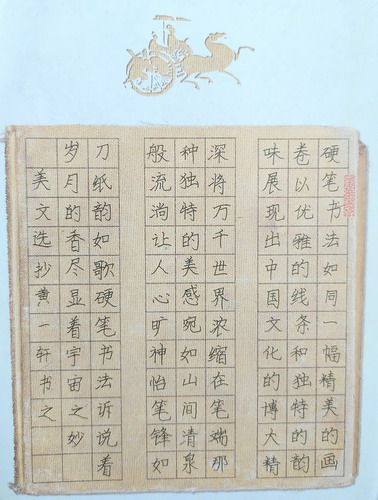 硬笔书法如同一幅精美的画
卷以优雅的线条和独特的韵
味展现出中国文化的博大精
深将万千世界浓缩在笔端那
种独特的美感宛如山间清泉
般流淌让人心旷神怡笔锋如
刀纸韵如歌硬笔书法诉说着
岁月的香尽显着宇宙之妙
美文选抄黄一轩书之